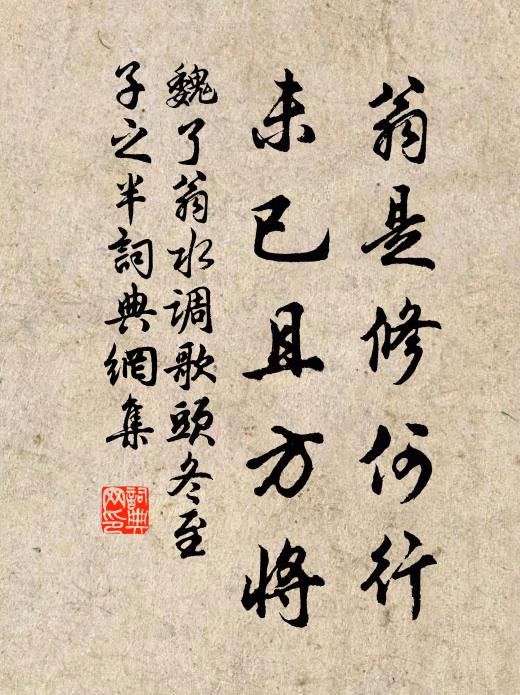 翁是修何行
未已且方将
魏了翁水调歌頭冬至
子之半詞典網集
詞典网印